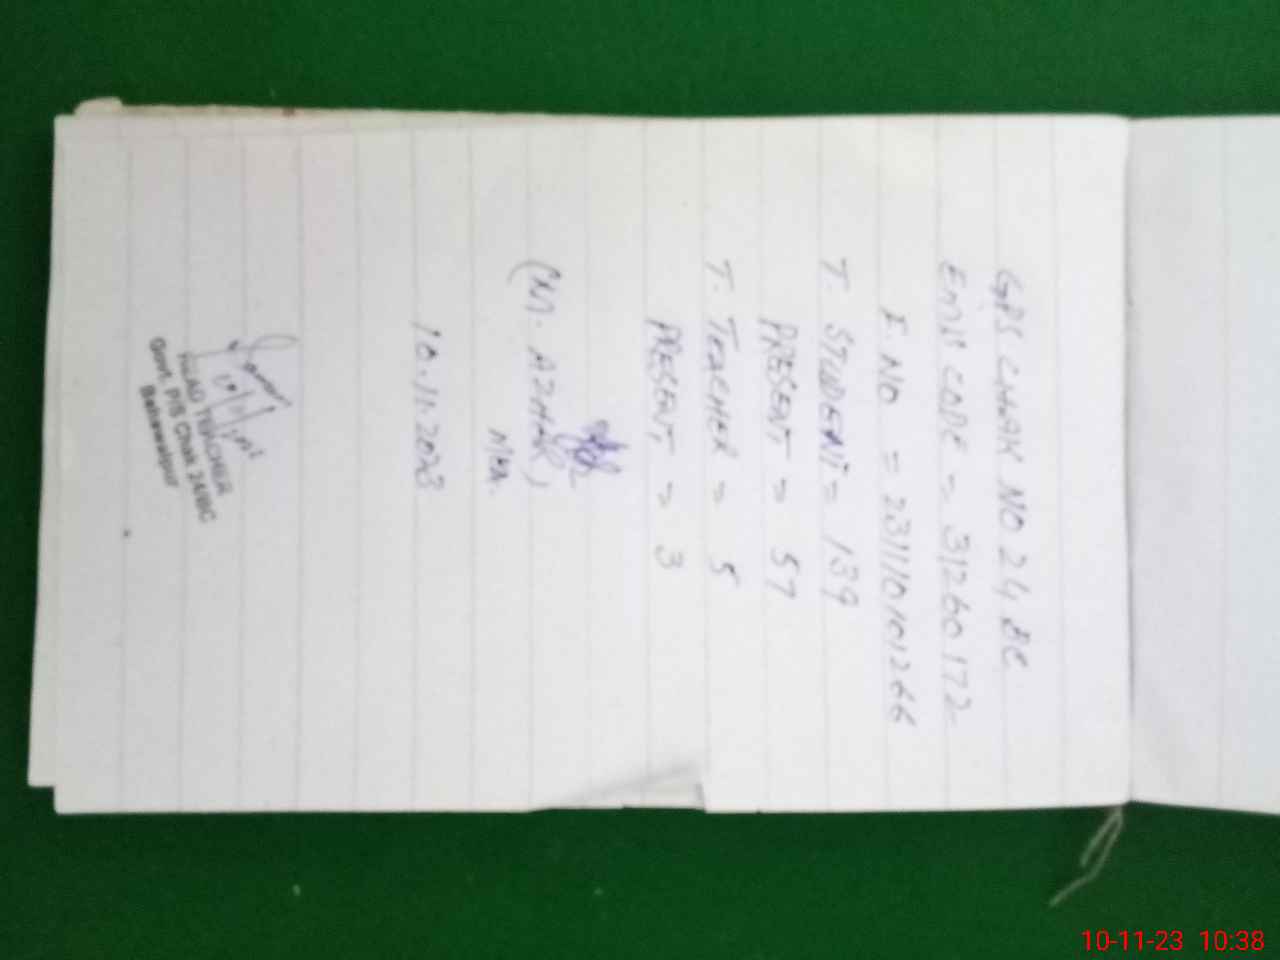 GPS CHAK NO 24 BC
EMIS CODE = 31260172
I. NO = 23111010101266
T. STUDENT = 139
PRESENT = 57
T. TEACHER = 5
PRESENT = 3
(M. AZHAR)
MEA.
10.11.2023
HEAD TEACHER
Govt. P/S Chak 24/BC
Bahawalpur
10-11-23 10:38